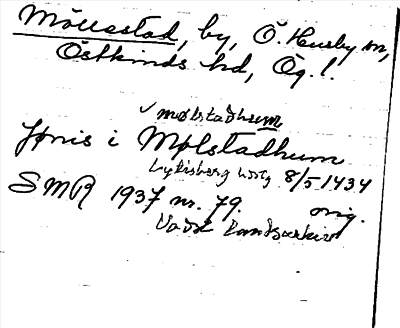 Möllestad, by, Ö. Husby sn,
Östkinds hd, Ög. l.
✓ mølstadhum
Jønis i Mølstadhum
Lyckisberg 8/5 1434
SMR 1937 nr. 79. orig.
Vadst Landsarkiv